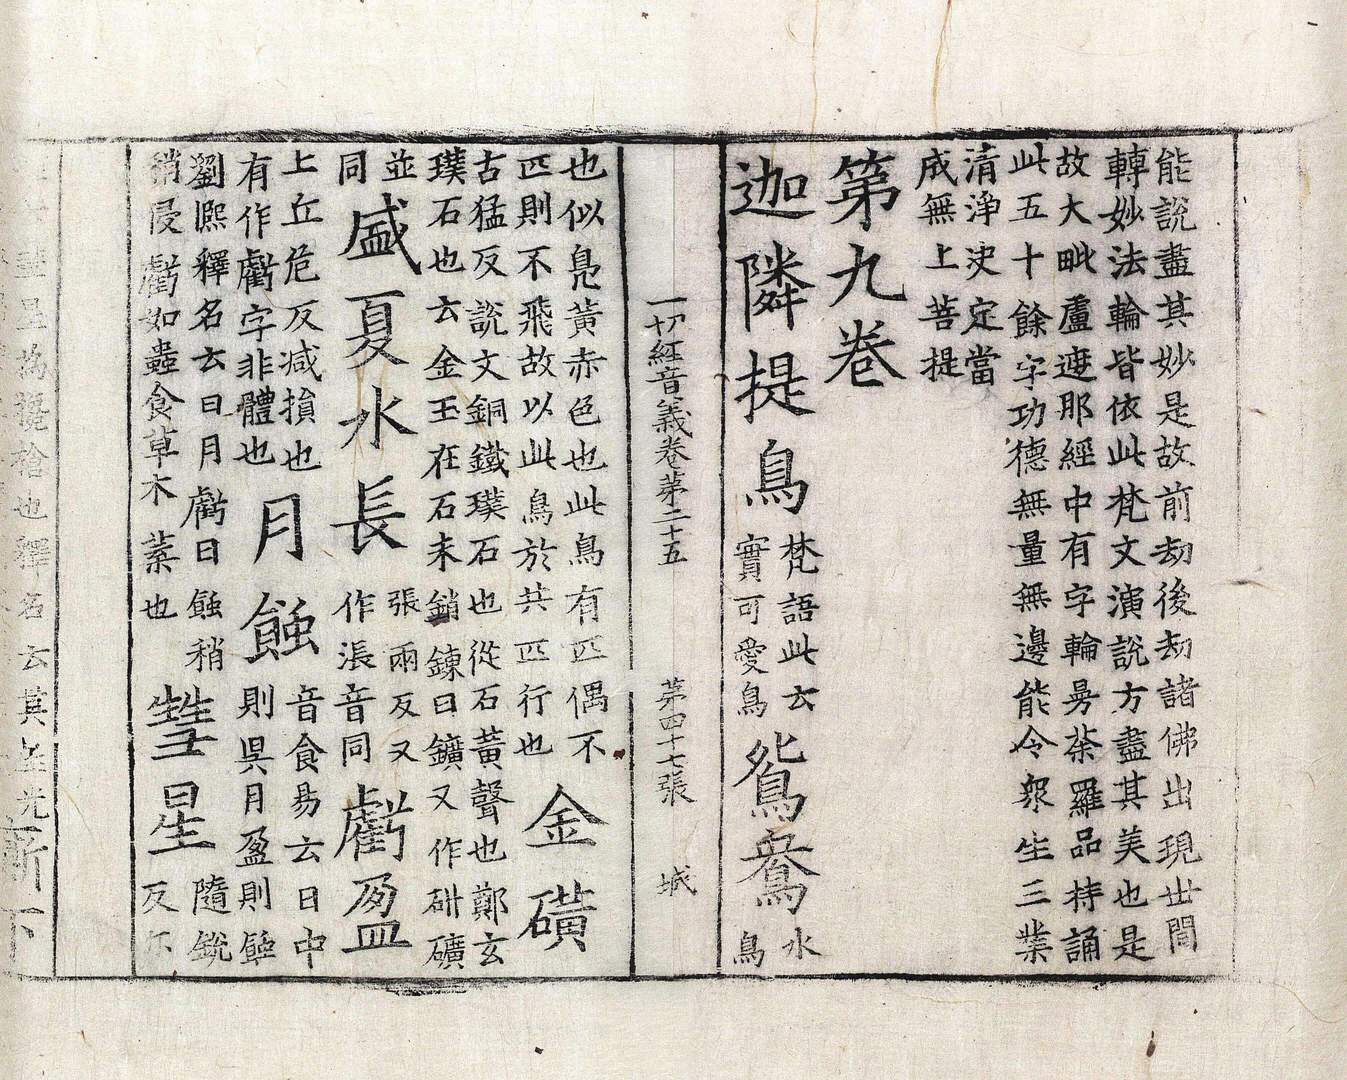 能說盡其妙是故前劫後劫諸佛出現世間
轉妙法輪皆依此梵文演說方盡其美也是
故大毗盧遮那經中有字輪曼荼羅品持誦
此五十餘字功德無量無邊能令衆生三業
清淨決定當
成無上菩提
第九卷
迦隣提鳥 梵語此云
實可愛鳥 鴛鴦 水
鳥
一切經音義卷第二十五 第四十七張 城
也似鳧黃赤色也此鳥有匹偶不
匹則不飛故以此鳥於共匹行也 金礦
古猛反說文銅鐵璞石也從石黃聲也鄭玄
璞石也云金玉在石未銷鍊曰鑛又作䂵礦
並
同 盛夏水長 張兩反又
作漲音同 虧盈
上丘危反減損也
有作虧字非體也 月蝕 音食易云日中
則昃月盈則蝕
劉熈釋名云日月虧曰蝕稍
稍侵虧如蟲食草木葉也 彗星 隨銳
反尓
彗星為欃槍也釋名云其星光